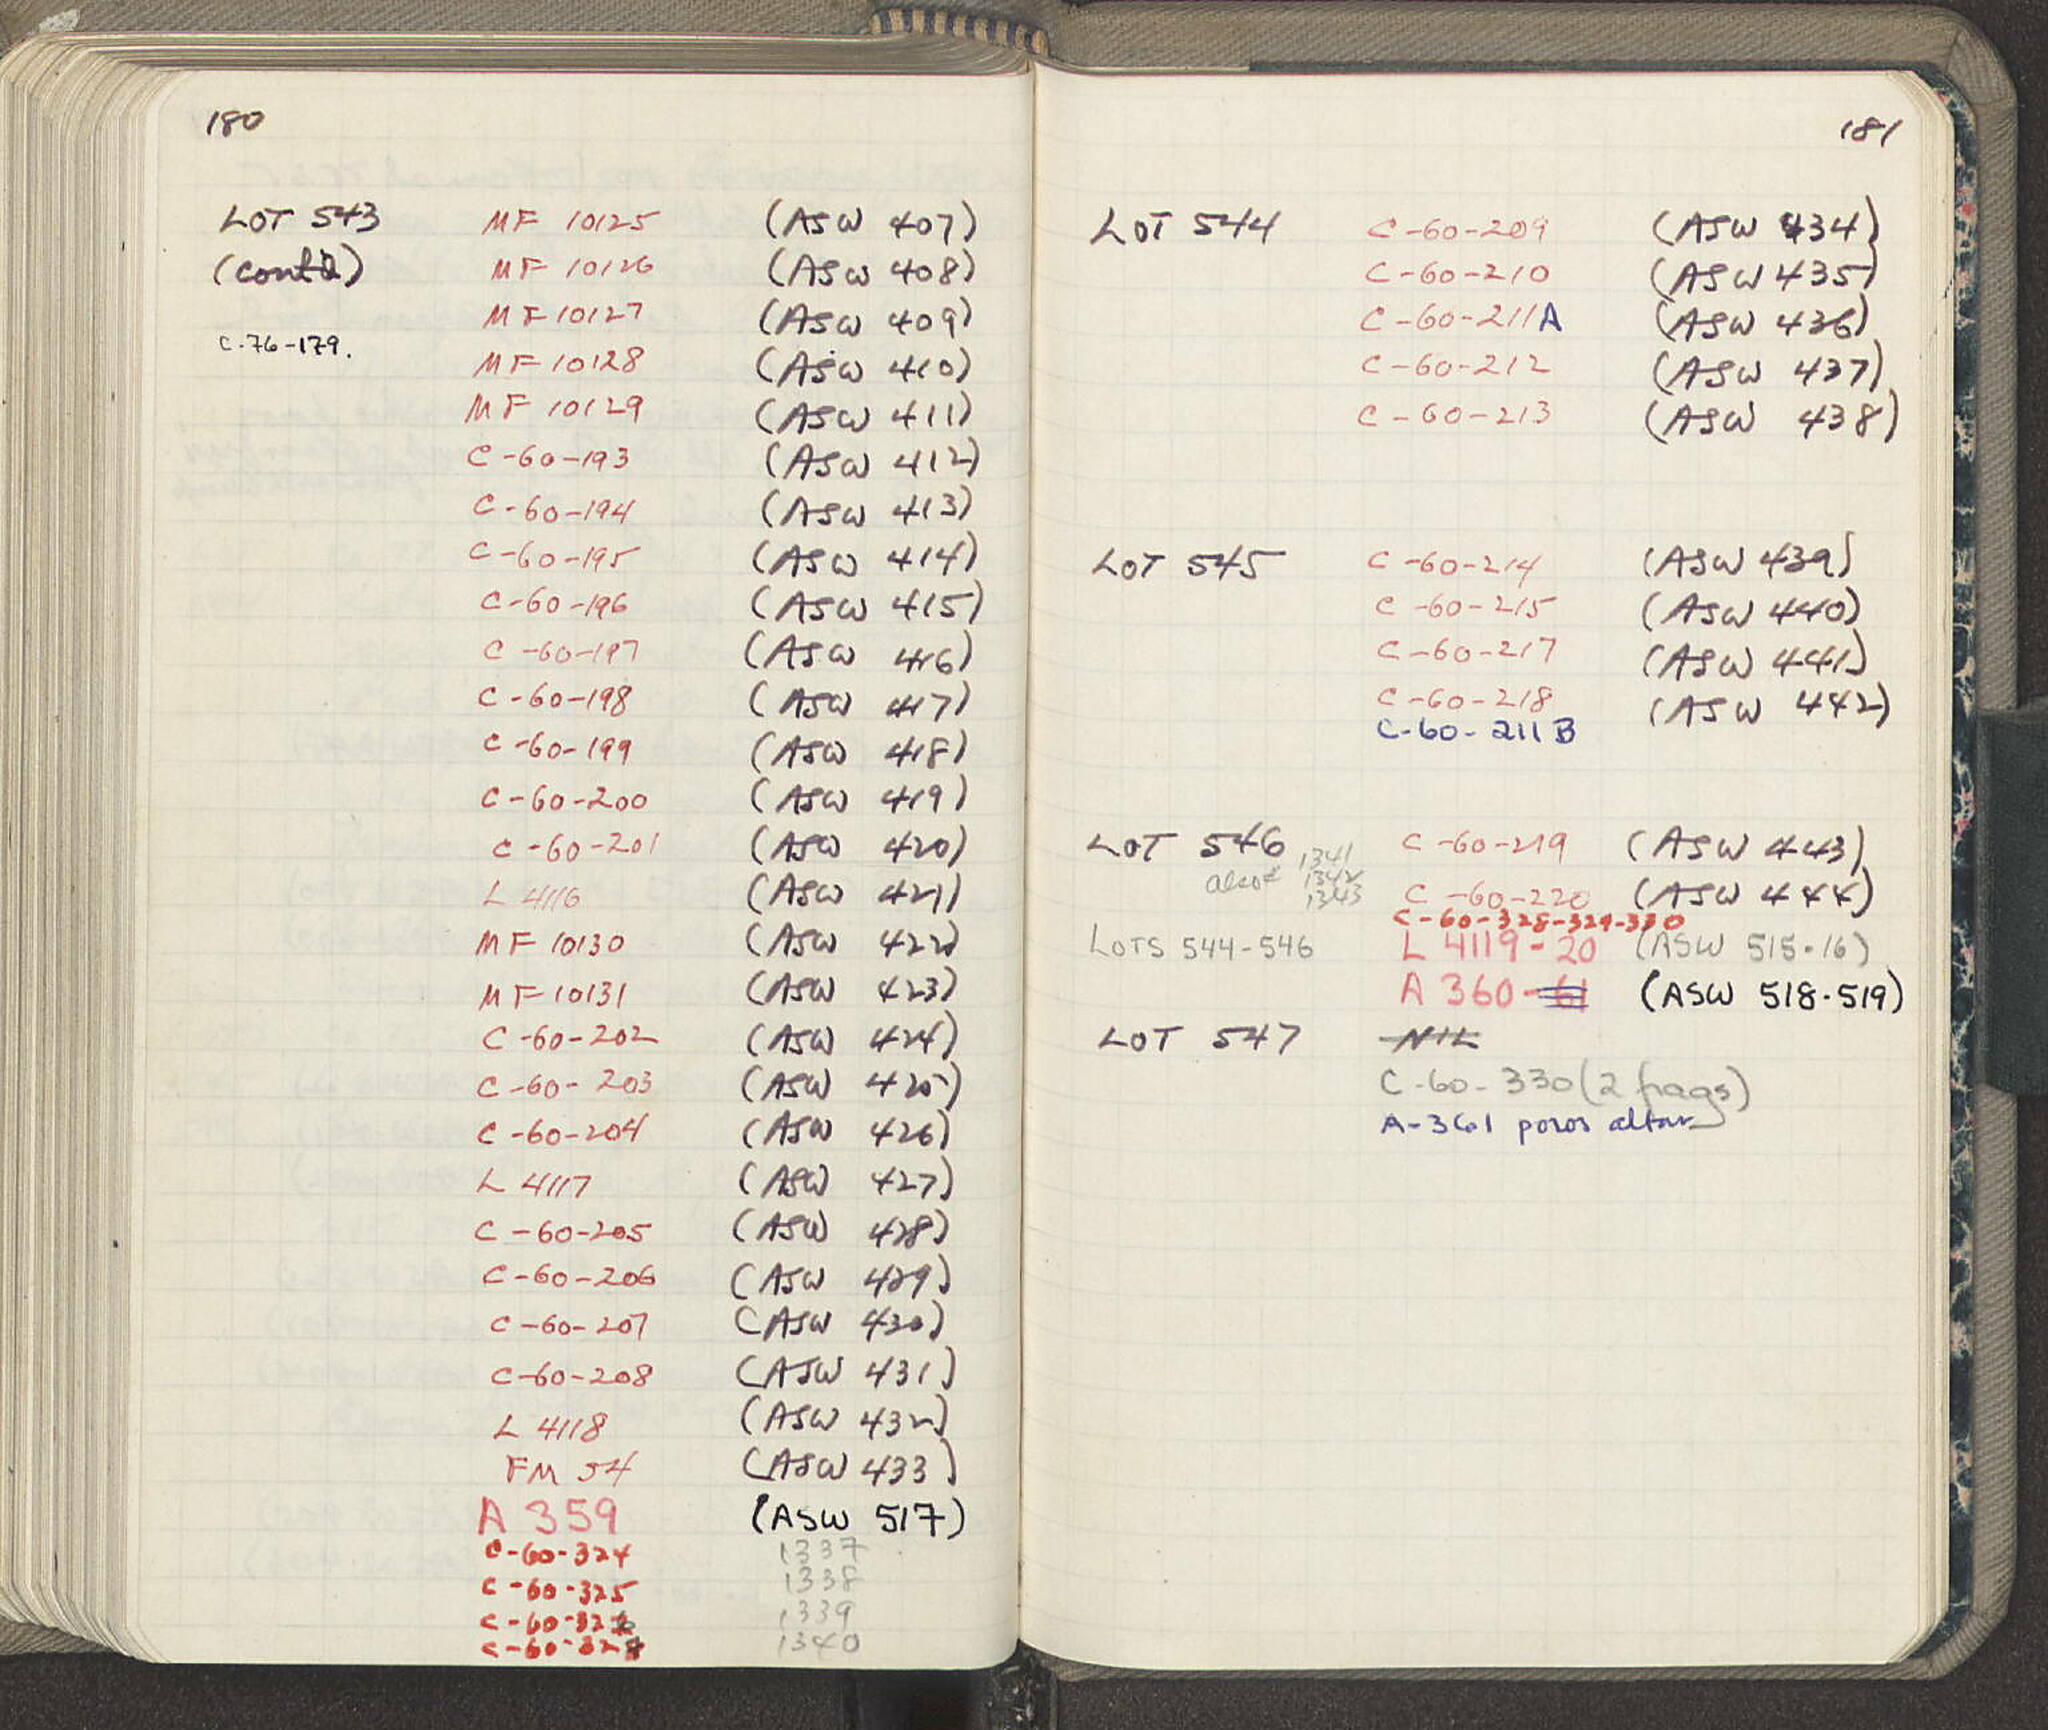 180
LOT 543 MF 10125 (ASW 407)
(cont'd) MF 10126 (ASW 408)
MF 10127 (ASW 409)
C-76-179.
MF 10128 (ASW 410)
MF 10129 (ASW 411)
C-60-193 (ASW 412)
C-60-194 (ASW 413)
C-60-195 (ASW 414)
C-60-196 (ASW 415)
C-60-197 (ASW 416)
C-60-198 (ASW 417)
C-60-199 (ASW 418)
C-60-200 (ASW 419)
C-60-201 (ASW 420)
L 4116 (ASW 421)
MF 10130 (ASW 422)
MF 10131 (ASW 423)
C-60-202 (ASW 424)
C-60-203 (ASW 425)
C-60-204 (ASW 426)
L 4117 (ASW 427)
C-60-205 (ASW 428)
C-60-206 (ASW 429)
C-60-207 (ASW 430)
C-60-208 (ASW 431)
L 4118 (ASW 432)
FM 54 (ASW 433)
A 359 (ASW 517)
C-60-324 1337
C-60-325 1338
C-60-326 1339
C-60-327 1340
181
LOT 544 C-60-209 (ASW 434)
C-60-210 (ASW 435)
C-60-211A (ASW 436)
C-60-212 (ASW 437)
C-60-213 (ASW 438)
LOT 545 C-60-214 (ASW 439)
C-60-215 (ASW 440)
C-60-217 (ASW 441)
C-60-218 (ASW 442)
C-60-211B
LOT 546 C-60-219 (ASW 443)
1341
also 1342
1343
C-60-220 (ASW 444)
C-60-328-329-330
LOTS 544-546 L 4119-20 (ASW 515-16)
A 360-61 (ASW 518-519)
LOT 547 NIL
C-60-330 (2 frags)
A-361 poros altar